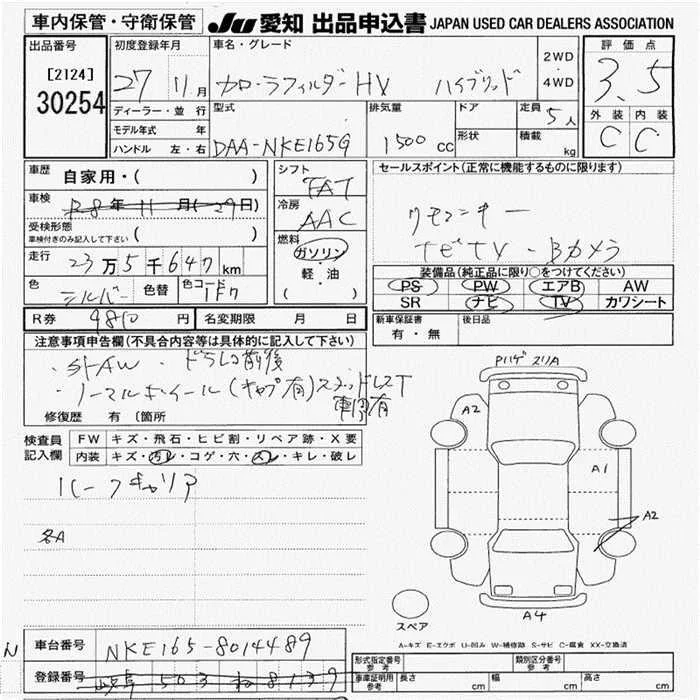 車内保管・守衛保管 JU 愛知 出品申込書 JAPAN USED CAR DEALERS ASSOCIATION
出品番号 初度登録年月 車名・グレード 2WD 評価点
[2124] 27 11月 カローラフィルダーHV ハイブリッド 4WD 3.5
30254 ディーラー・並行 型式 排気量 ドア 定員 5人 外装 内装
モデル年式 年 DAA-NKE165G 1500cc 形状 積載 C C
ハンドル 左・右 kg
車歴 自家用・( ) シフト FAT セールスポイント(正常に機能するものに限ります)
車検 R8年11月(29日) 冷房 AAC リモコンキー
受検形態 ( ) 燃料 ナビTV・Bカメラ
車検付きのみ記入して下さい ガソリン
走行 23万5千647km 軽・油 装備品(純正品に限り○をつけてください)
色 シルバー 色替 色コード 1F7 ( ) PS PW エアB AW
SR ナビ TV カワシート
R券 9810円 名変期限 月 日 新車保証書 後日品
有・無
注意事項申告欄(不具合内容等は具体的に記入して下さい)
・社外AW ・ドラレコ前後 Pハゲ スリA
・ノーマルホイール(キャプ有)スタッドレスT
車内有
修復歴 有 〔箇所 A2
検査員 FW キズ・飛石・ヒビ割・リペア跡・X要
記入欄 内装 キズ・汚レ・コゲ・穴・スレ・キレ・破レ
ルーフキャリア A1
各A A2
スペア A4
A-キズ E-エクボ U-凹み W-補修跡 S-サビ C-腐食 XX-交換済
N 車台番号 NKE165-8014489
形式指定番号 参考 類別区分番号 参考
登録番号 岐阜 503 ね 8139 車庫証明用 参考 長さ cm 幅 cm 高さ cm